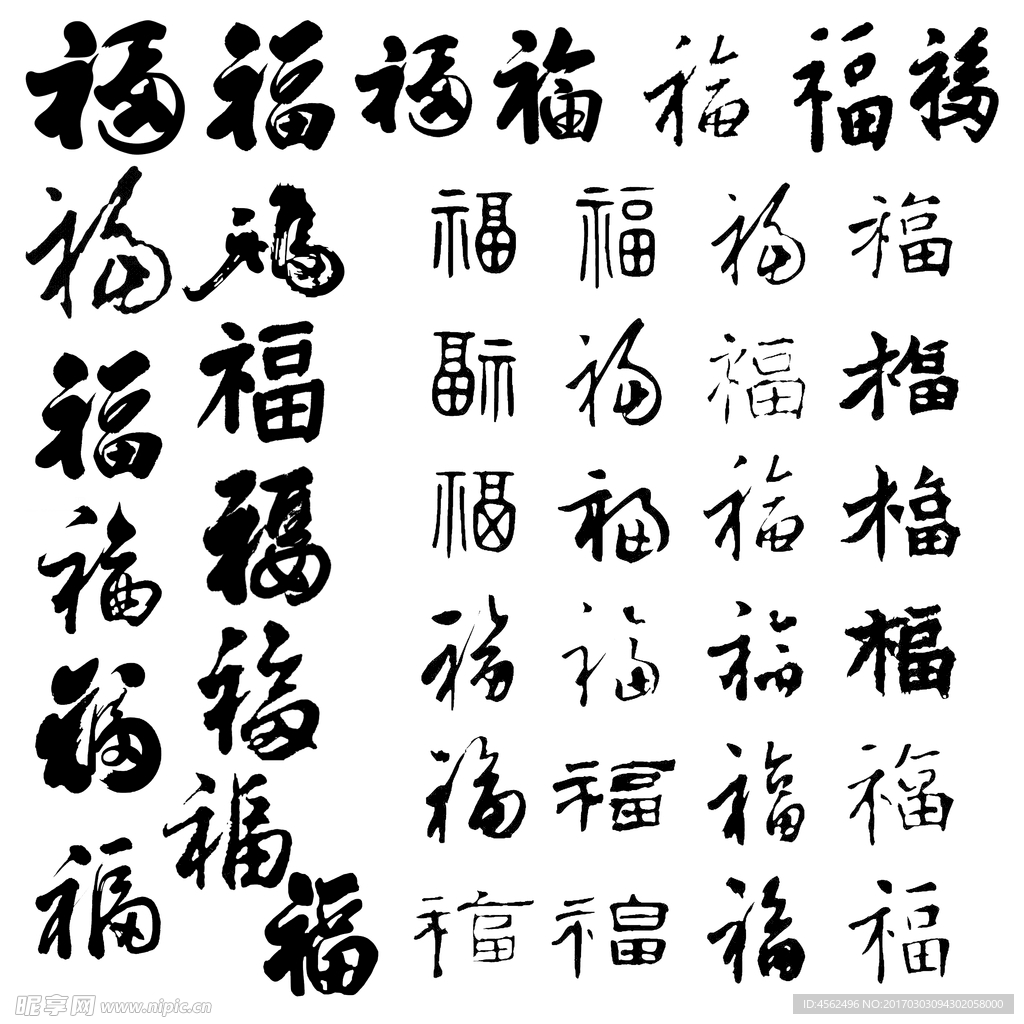 福福福福福福福
福福福福福福
福福福福福福
福福福福福福
福福福福福福
福福福福福福
福福福福福
昵享网 www.nipic.cn
ID:4562496 NO:20170303094302058000